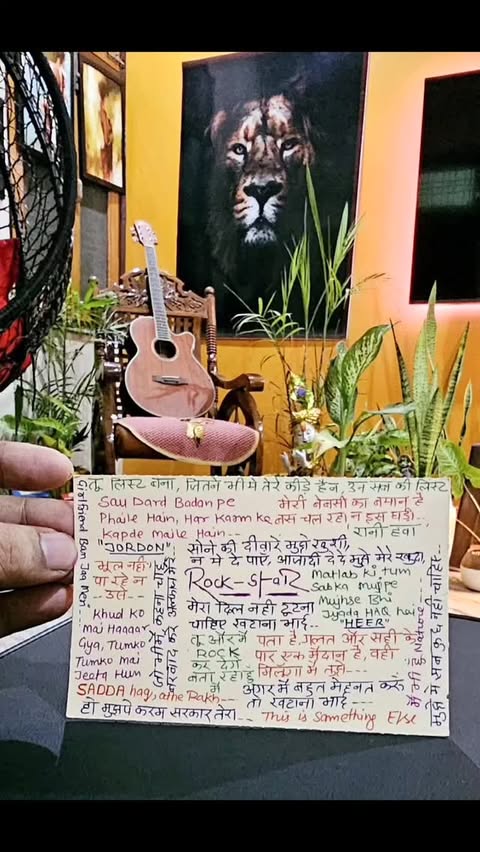 तू लिस्ट बना, जितने भी ये तेरे कीड़े हैं न, उन सब की लिस्ट
Sau Dard Badan pe
Phaile Hain, Har Karm ke
Kapde maile Hain---
मेरी बेबसी का बयान है
बस चल रहा न इस घड़ी..
रानी हवा
"JORDON"
सोने की दीवारें मुझे खुशी,
न मे दे पाए, आजादी दे दे मुझे मेरे खुदा,
भूल नहीं
पा रहे न
उसे--
Rock--staR
Matlab ki tum
Sabka mujpe
Mujhse Bhi
Jyada HAQ hai
"HEER"
मेरा दिल नही टूटना
चाहिए खटाना भाई..
Khud ko
Mai Haaaar
Gya, Tumko
Tumko Mai
Jeeta Hun
तू और में
ROCK
कर देंगे
बता रहा हूं
में
पता है, गलत और सही के
पार एक मैदान है, वहा
मिलूंगा में तुझे...
SADDA haq, athe Rakh--
अगर में बहुत मेहनत करूं
तो खटाना भाई ---
हो मुझपे करम सरकार तेरा...
This is Something Else
जो भी में कहना चाहूं
बरबाद करे अल्फाज मेरे